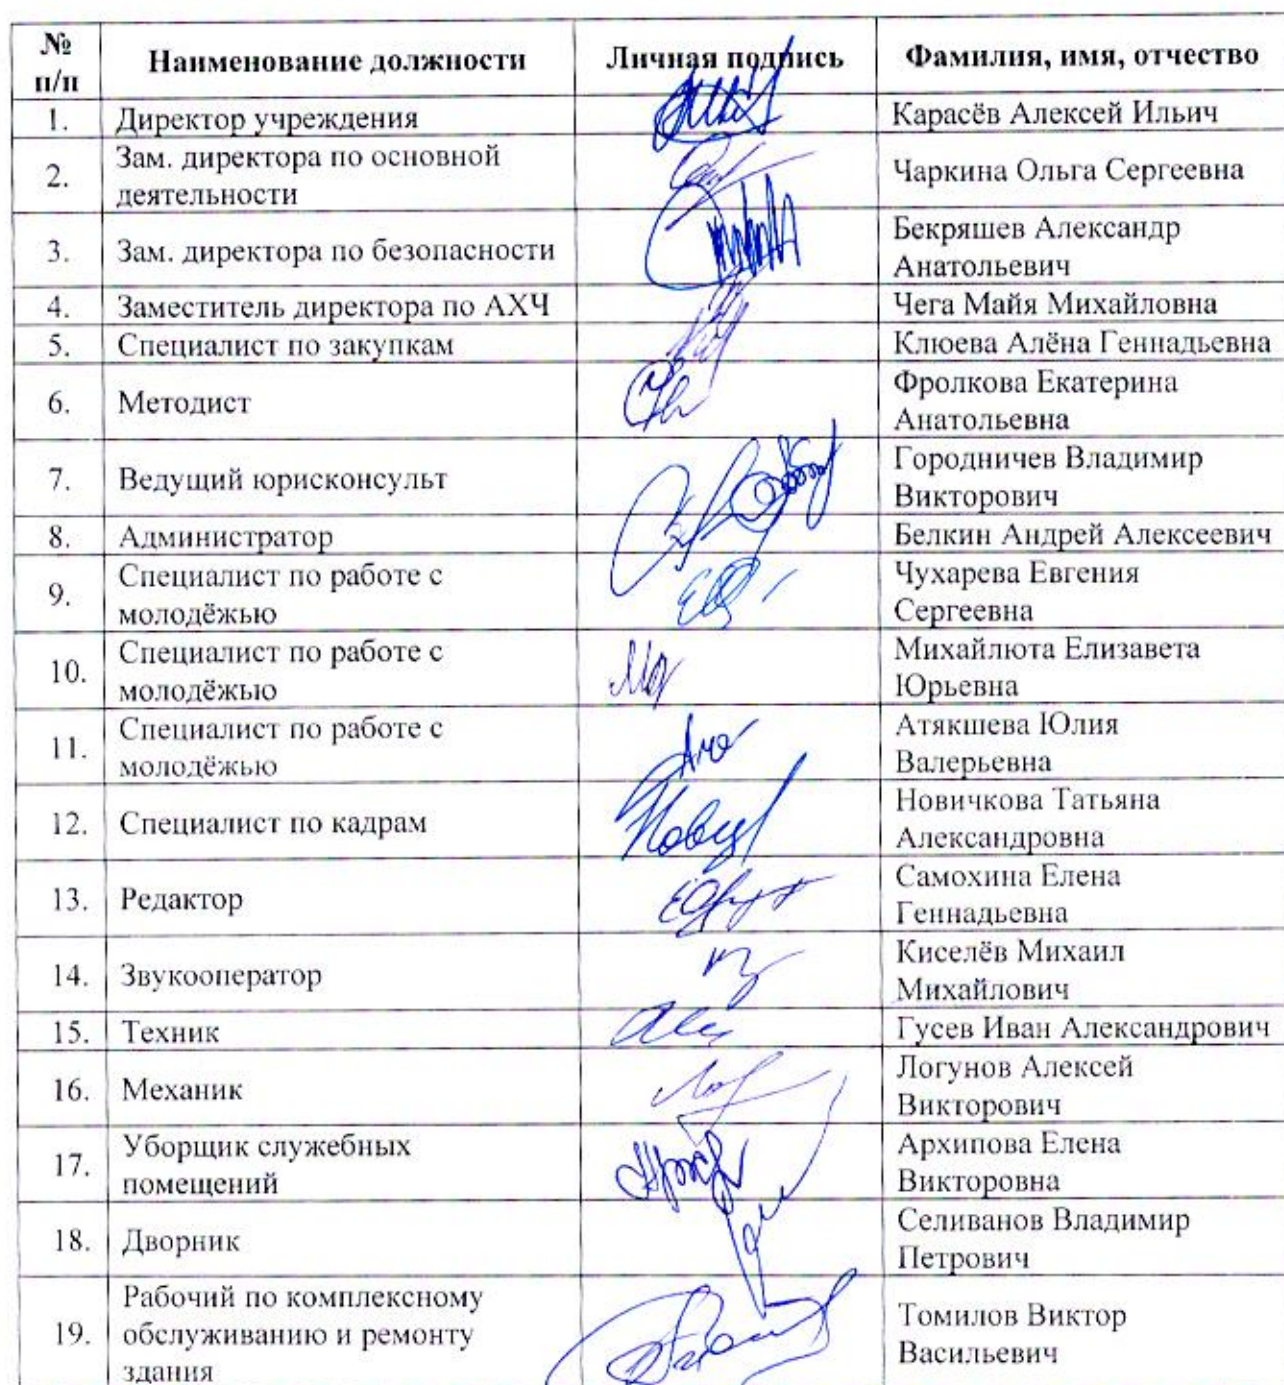 № п/п Наименование должности Личная подпись Фамилия, имя, отчество
1. Директор учреждения Карасёв Алексей Ильич
2. Зам. директора по основной деятельности Чаркина Ольга Сергеевна
3. Зам. директора по безопасности Бекряшев Александр Анатольевич
4. Заместитель директора по АХЧ Чега Майя Михайловна
5. Специалист по закупкам Клюева Алёна Геннадьевна
6. Методист Фролкова Екатерина Анатольевна
7. Ведущий юрисконсульт Городничев Владимир Викторович
8. Администратор Белкин Андрей Алексеевич
9. Специалист по работе с молодёжью Чухарева Евгения Сергеевна
10. Специалист по работе с молодёжью Михайлюта Елизавета Юрьевна
11. Специалист по работе с молодёжью Атякшева Юлия Валерьевна
12. Специалист по кадрам Новичкова Татьяна Александровна
13. Редактор Самохина Елена Геннадьевна
14. Звукооператор Киселёв Михаил Михайлович
15. Техник Гусев Иван Александрович
16. Механик Логунов Алексей Викторович
17. Уборщик служебных помещений Архипова Елена Викторовна
18. Дворник Селиванов Владимир Петрович
19. Рабочий по комплексному обслуживанию и ремонту здания Томилов Виктор Васильевич